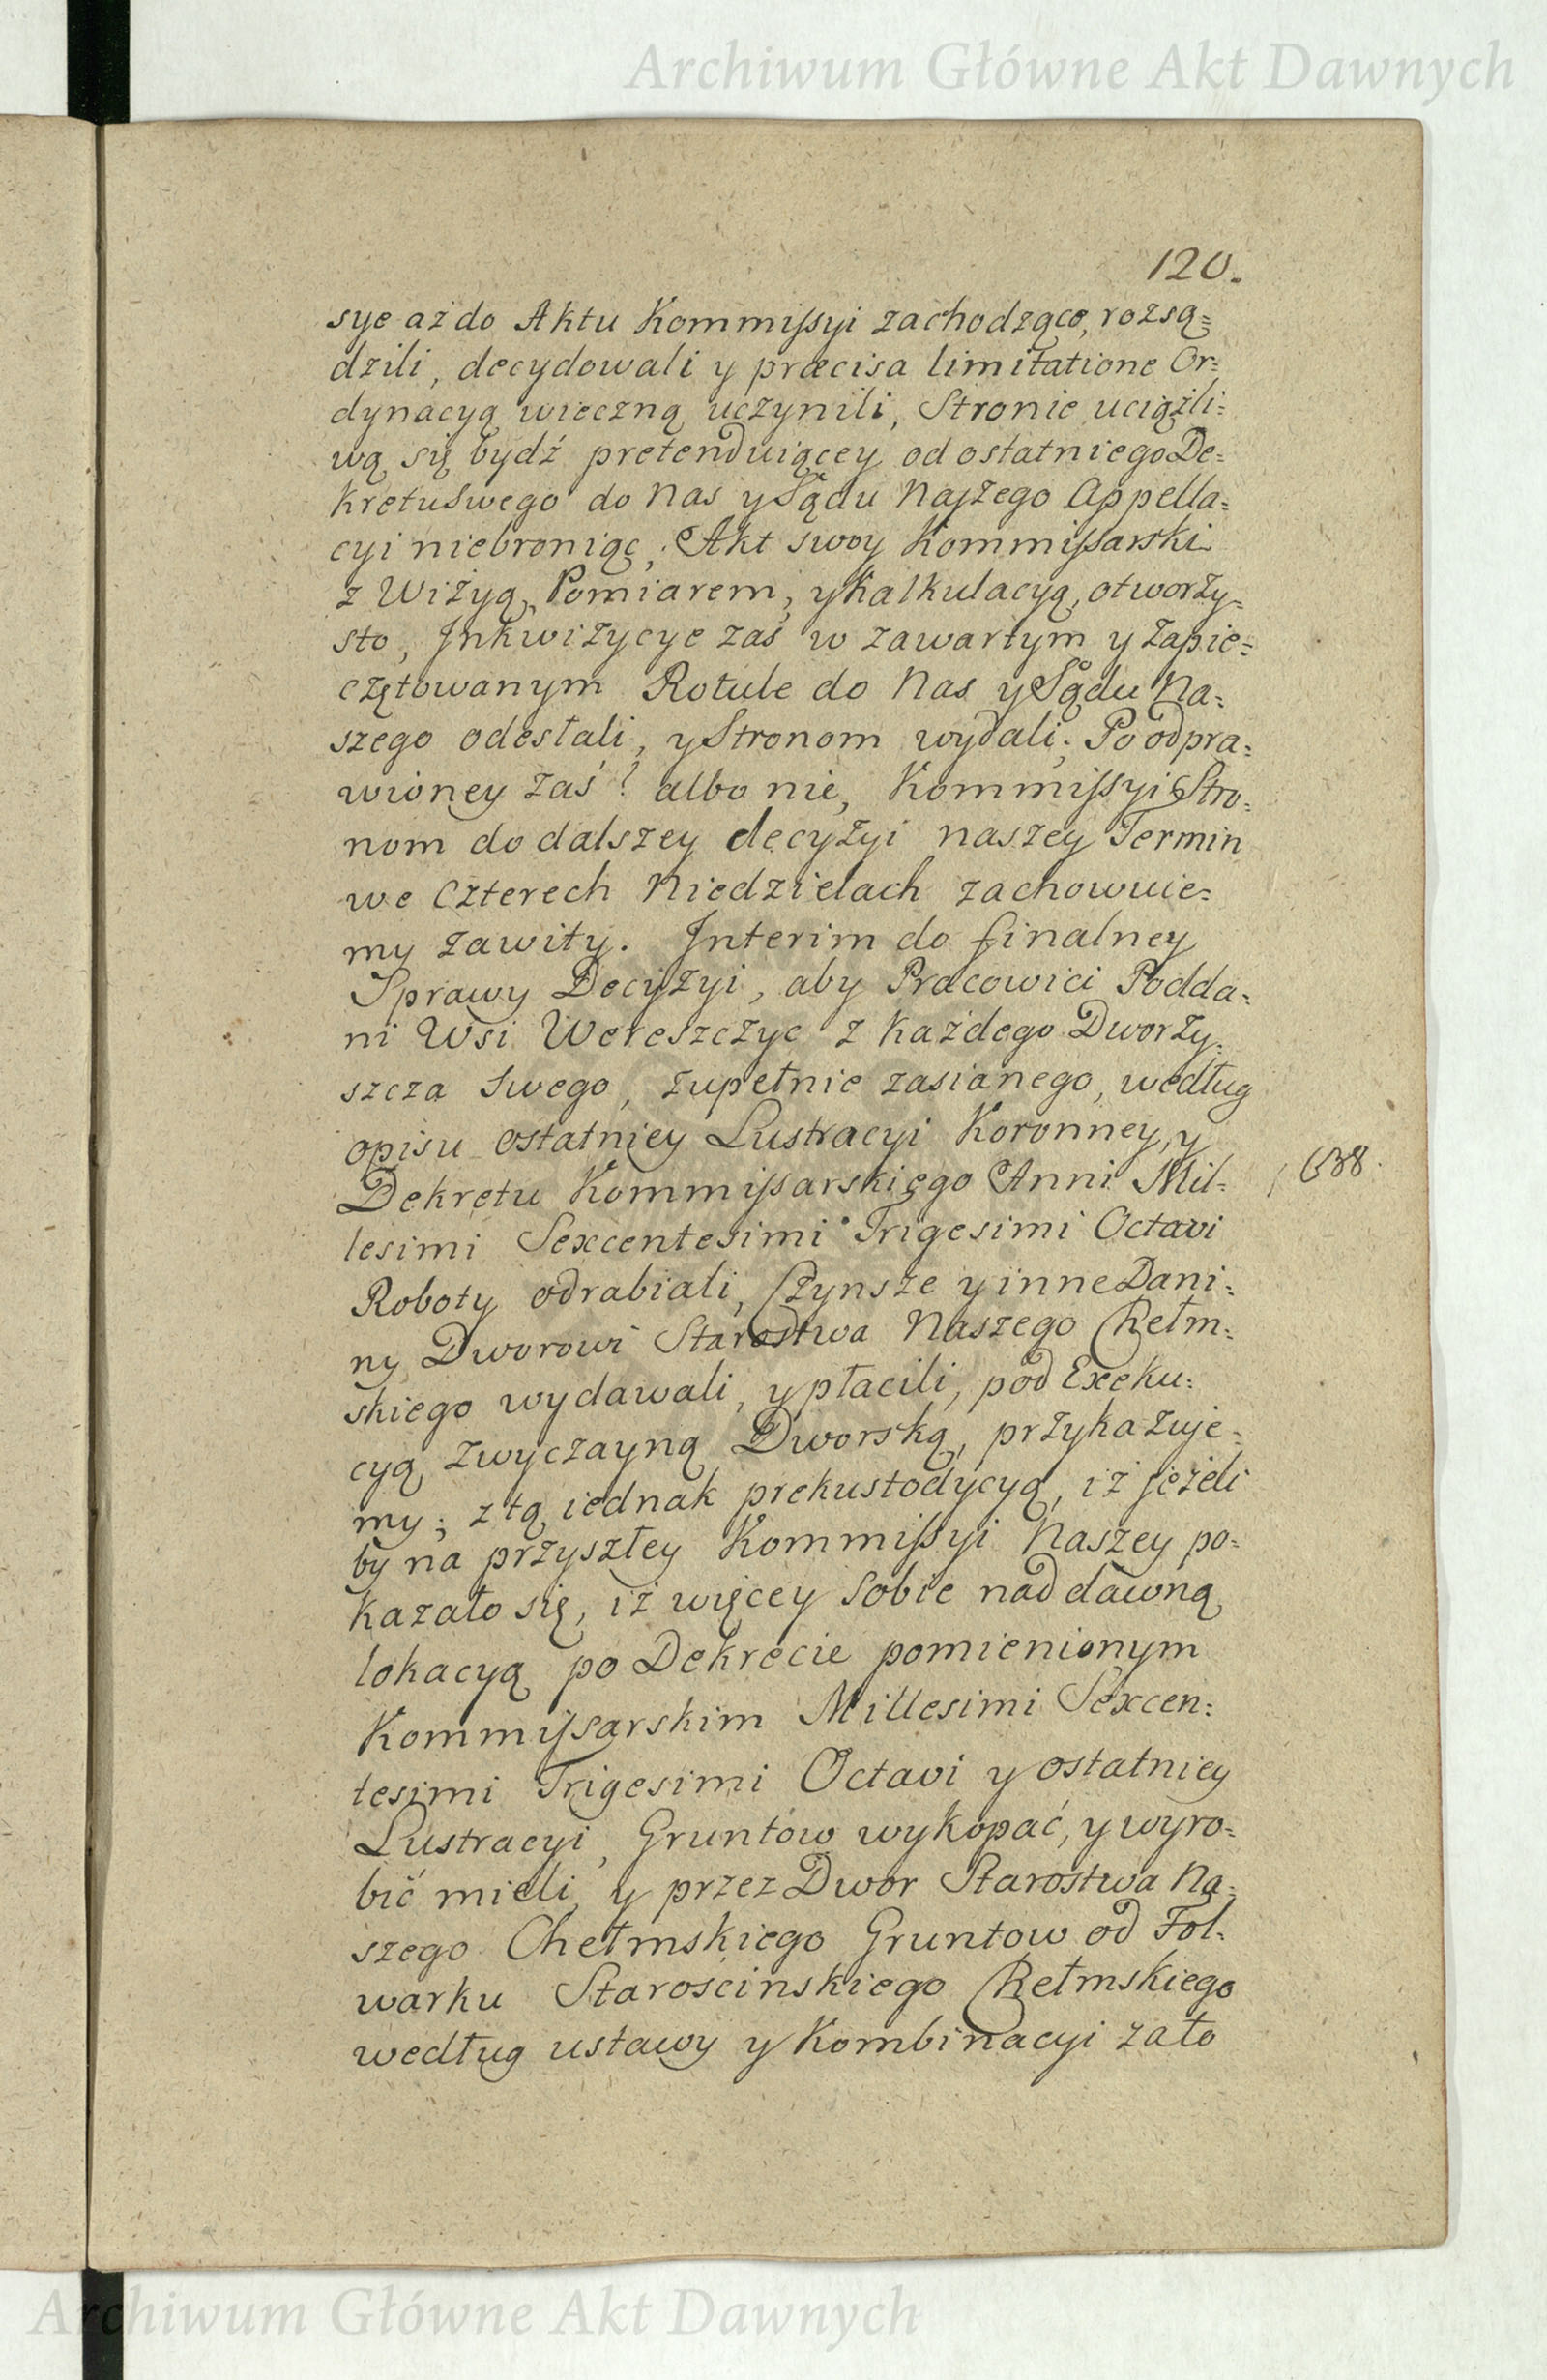 Archiwum Główne Akt Dawnych
120.
sye aż do Aktu Kommissyi zachodzące, rozsą=
dzili, decydowali y præcisa limitatione Or=
dynacyą wieczną uczynili, Stronie uciążli=
wą się bydź pretenduiącey od ostatniego De=
kretu Swego do Nas y Sądu Naszego Appella=
cyi niebroniąc, Akt swoy Kommissarski
z Wizyą, Pomiarem, y Kalkulacyą, otworzy=
sto, Inkwizycye zaś w zawartym y zapie=
czętowanym Rotule do Nas y Sądu Na=
szego odesłali, y Stronom wydali. Po odpra=
wioney zaś? albo nie, Kommissyi Stro=
nom do dalszey decyzyi naszey Termin
we Czterech Niedzielach zachowuie=
my zawity. Interim do finalney
Sprawy Decyzyi, aby Pracowici Podda=
ni Wsi Wereszczyc z każdego Dworzy=
szcza Swego, zupełnie zasianego, według
opisu ostatniey Lustracyi Koronney, y
Dekretu Kommissarskiego Anni Mil=
1638.
lesimi Sexcentesimi Trigesimi Octavi
Roboty odrabiali, Czynsze y inne Dani=
ny Dworowi Starostwa Naszego Chełm=
skiego wydawali, y płacili, pod Exeku=
cyą zwyczayną Dworską, przykazuje=
my; z tą iednak prekustodycyą, iż jeżeli
by na przyszłey Kommissyi Naszey po=
kazało się, iż więcey sobie nad dawną
lokacyą po Dekrecie pomienionym
Kommissarskim Millesimi Sexcen=
tesimi Trigesimi Octavi y ostatniey
Lustracyi, Gruntów wykopać, y wyro=
bić mieli, y przez Dwor Starostwa Na=
szego Chełmskiego Gruntow od Fol=
warku Starościnskiego Chełmskiego
według ustawy y Kombinacyi zało
Archiwum Główne Akt Dawnych